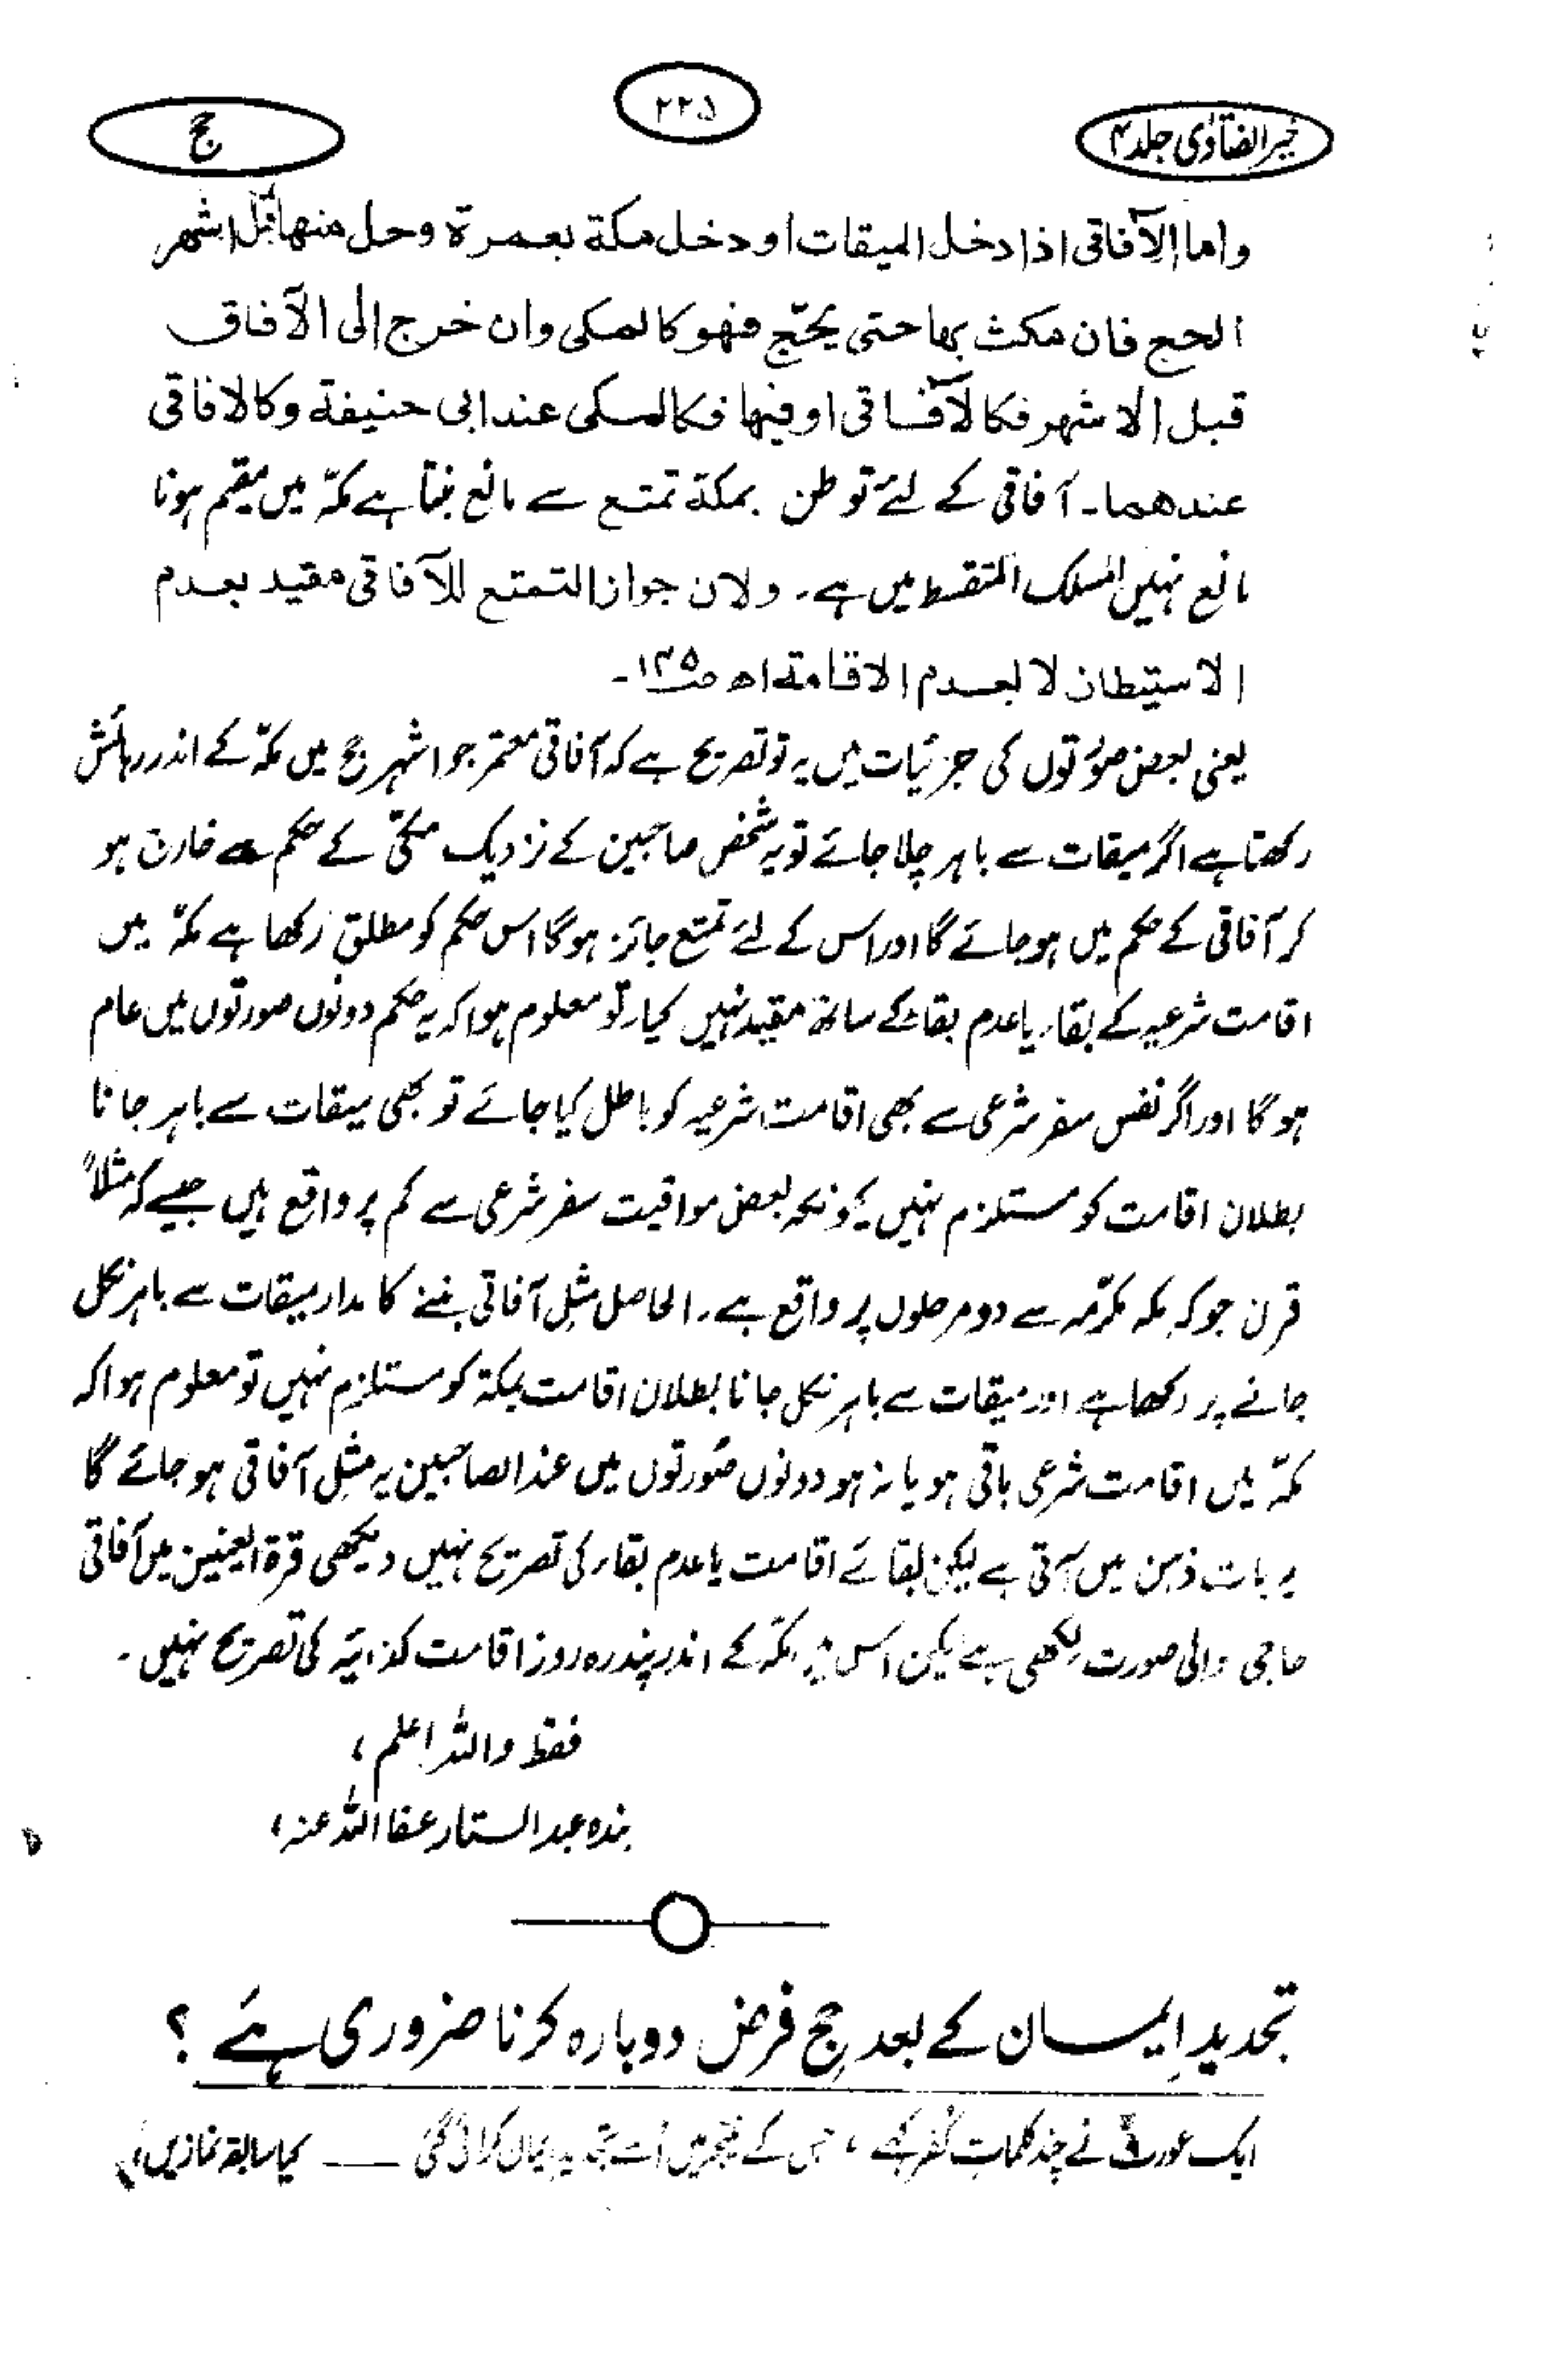 خیر الفتاوی جلد ۴
۲۲۵
حج
واما الآفاقی اذا دخل المیقات او دخل مکة بعمرة وحل منها قبل اشهر
الحج فان مکث بها حتی یحج فهو کالمکی وان خرج الی الآفاق
قبل الاشهر فکالآفاقی او فیها فکالمکی عند ابی حنیفة وکالافاقی
عندهما۔ آفاقی کے لئے توطن بمکة تمتع سے مانع بنتا ہے مکہ میں مقیم ہونا
مانع نہیں المسلک المتقسط میں ہے۔ ولان جواز التمتع للآفاقی مقید بعدم
الاستیطان لا بعدم الاقامة اھ ص۱۲۵۔
یعنی بعض صورتوں کی جزئیات میں یہ تو تصریح ہے کہ آفاقی معتمر جو اشہر حج میں مکہ کے اندر رہائش
رکھتا ہے اگر میقات سے باہر چلا جائے تو یہ شخص صاحبین کے نزدیک مکی کے حکم سے خارج ہو
کر آفاقی کے حکم میں ہو جائے گا اور اس کے لئے تمتع جائز ہوگا اس حکم کو مطلق رکھا ہے مکہ میں
اقامت شرعیہ کے بقاء یا عدم بقاء کے ساتھ مقید نہیں کیا۔ تو معلوم ہوا کہ یہ حکم دونوں صورتوں میں عام
ہوگا اور اگر نفس سفر شرعی سے بھی اقامت شرعیہ کو باطل کیا جائے تو بھی میقات سے باہر جانا
بطلان اقامت کو مستلزم نہیں کیونکہ بعض مواقیت سفر شرعی سے کم پر واقع ہیں جیسے کہ مثلاً
قرن جو کہ مکہ مکرمہ سے دو مرحلوں پر واقع ہے۔ الحاصل مثل آفاقی بننے کا مدار میقات سے باہر نکل
جانے پر رکھا ہے اور میقات سے باہر نکل جانا بطلان اقامت بمکة کو مستلزم نہیں تو معلوم ہوا کہ
مکہ میں اقامت شرعی باقی ہو یا نہ ہو دونوں صورتوں میں عند الصاحبین یہ مثل آفاقی ہو جائے گا
یہ بات ذہن میں آتی ہے لیکن بقائے اقامت یا عدم بقاء کی تصریح نہیں دیکھی قرۃ العینین میں آفاقی
حاجی والی صورت لکھی ہے لیکن اس میں مکہ کے اندر پندرہ روز اقامت کذائیہ کی تصریح نہیں۔
فقط واللہ اعلم،
بندہ عبدالستار عفا اللہ عنہ،
تجدیدِ ایمان کے بعد حج فرض دوبارہ کرنا ضروری ہے ؟
ایک عورت نے چند کلمات کفر کہے، جس کے نتیجہ میں اسے تجدید ایمان کرائی گئی ـــ کیا سابقہ نمازیں